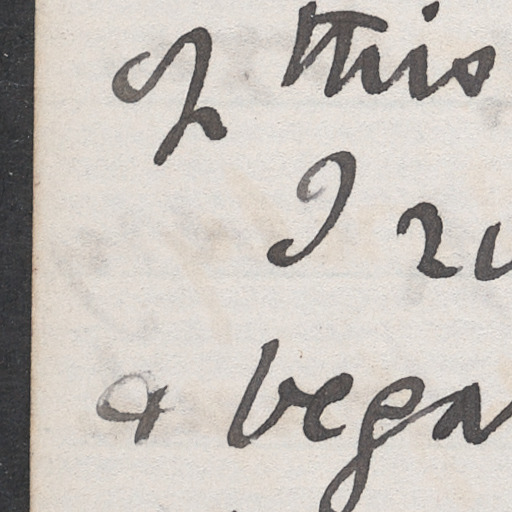 of this
I
& began